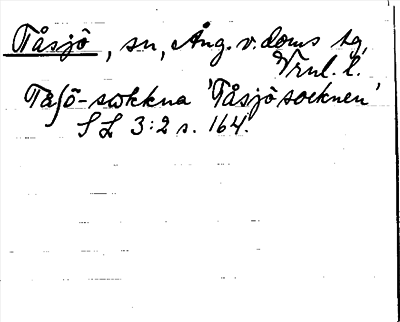 Tåsjö, sn, Ång. v. doms. tg,
Vrnl. l.
Tåʃö-sωkkna 'Tåsjö socknen'
S L 3:2 s. 164.